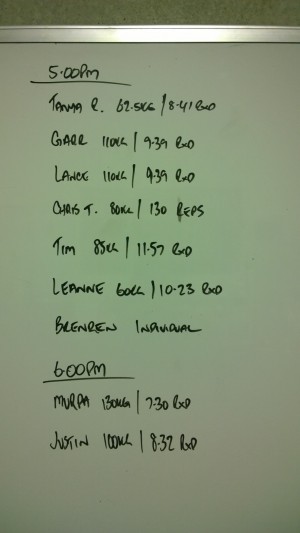 5:00PM
TANYA R. 62.5KG / 8.41 RXD
GARR 110KG / 9.39 RXD
LANCE 110KG / 9.39 RXD
CHRIS T. 80KG / 130 REPS
TIM 85KG / 11.57 RXD
LEANNE 60KG / 10.23 RXD
BRENDEN INDIVIDUAL
6:00PM
MURPA 130KG / 7.30 RXD
JUSTIN 100KG / 8.32 RXD